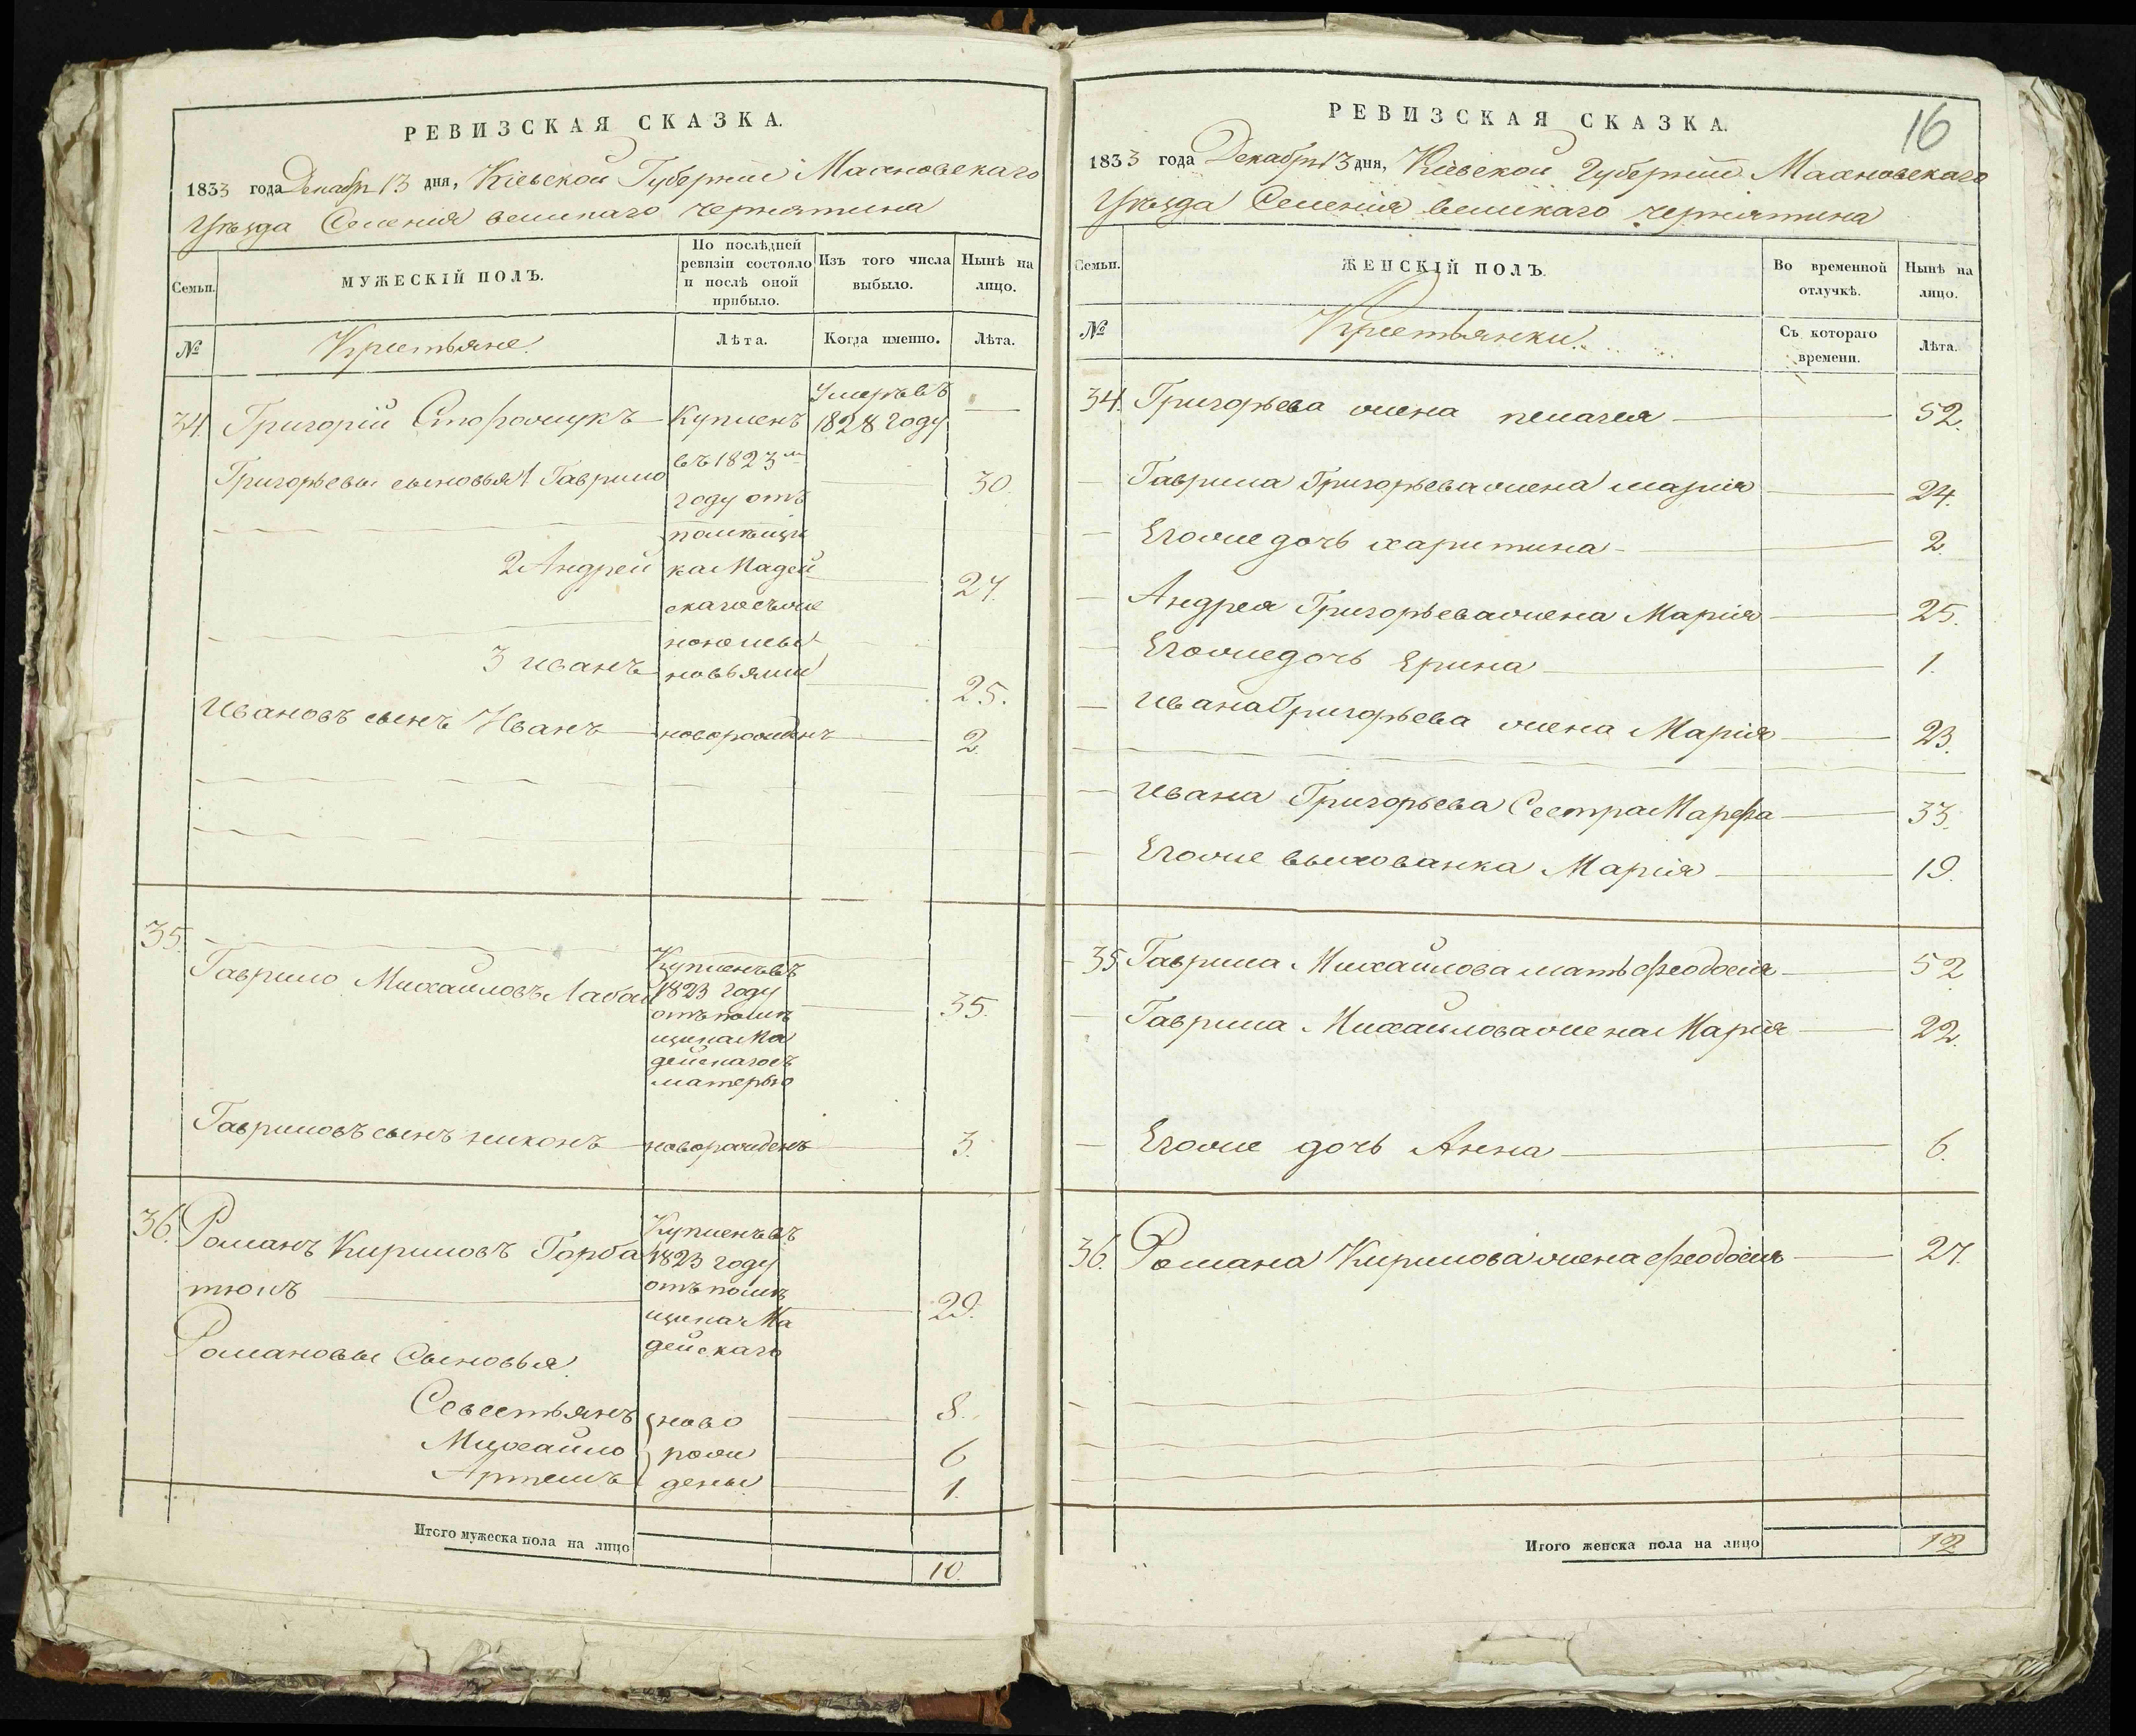 РЕВИЗСКАЯ СКАЗКА.
1833 года Декабря 13 дня, Кіевской Губерніи Махновскаго
Уѣзда Селенія великаго чернятина
Семьи.
МУЖЕСКІЙ ПОЛЪ.
По послѣдней
ревизіи состояло
и послѣ оной
прибыло.
Изъ того числа
выбыло.
Нынѣ на
лицо.
№
Крестьяне.
Лѣта.
Когда именно.
Лѣта.
34. Григорій Сторожукъ Купленъ
Умеръ въ
1828 году —
Григорьевы сыновья 1 Гаврило 30.
въ 1823 м
году отъ
помѣщи
2 Андрей ка Мадей 27.
скаго съ же
ною и сы
3 иванъ новьями 25.
Ивановъ сынъ Иванъ новорожденъ 2.
35.
Гаврило Михайловъ Лабай 35.
Купленъ въ
1823 году
отъ помѣ
щика Ма
дейскаго съ
матерью
Гавриловъ сынъ никонъ новорожденъ 3.
36. Романъ Кириловъ Горба
тюкъ 29.
Купленъ въ
1823 году
отъ помѣ
щика Ма
дейскаго
Романовы Сыновья
Севестьянъ ново 8.
Михайло рож 6
Артемъ дены 1.
Итого мужеска пола на лицо
10.
16
РЕВИЗСКАЯ СКАЗКА.
1833 года Декабря 13 дня, Кіевской Губерніи Махновскаго
Уѣзда Селенія великаго чернятина
Семьи.
ЖЕНСКІЙ ПОЛЪ.
Во временной
отлучкѣ.
Нынѣ на
лицо.
№
Крестьянки.
Съ котораго
времени.
Лѣта.
34. Григорьева жена пелагея 52.
Гаврила Григорьева жена марія 24.
Егоже дочь харитина 2.
Андрея Григорьева жена Марія 25.
Егоже дочь Ерина 1.
Ивана Григорьева жена Марія 23.
Ивана Григорьева Сестра Марфа 33.
Егоже выхованка Марія 19.
35 Гаврила Михайлова мать феодосія 52
Гаврила Михайлова жена Марія 22.
Егоже дочь Анна 6.
36. Романа Кирилова жена феодосія 27.
Итого женска пола на лицо
12